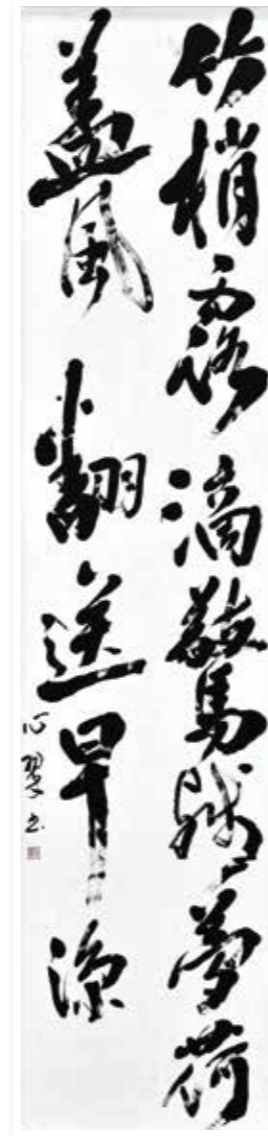 竹梢露滴驚殘夢荷
蓋風翻送早涼
心翠书